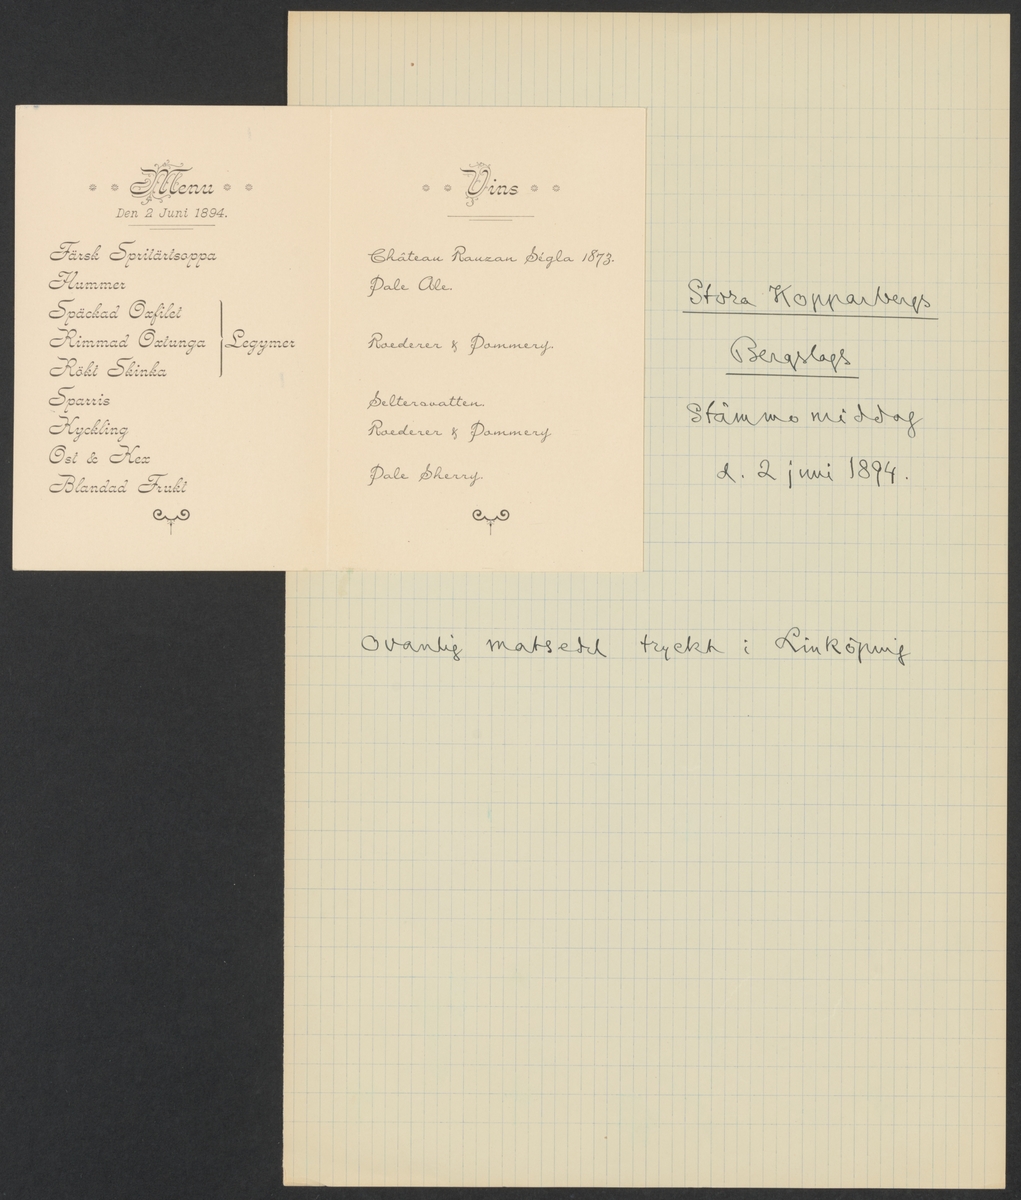 Menu
Den 2 Juni 1894.
Färsk Spritärtsoppa
Hummer
Späckad Oxfilet
Rimmad Oxtunga
Legymer
Rökt Skinka
Sparris
Kyckling
Ost & Kex
Blandad Frukt
Vins
Château Rauzan Ségla 1873.
Pale Ale.
Roederer & Pommery.
Seltersvatten.
Roederer & Pommery
Pale Sherry.
Stora Kopparbergs
Bergslags
Stämmomiddag
d. 2 juni 1894.
Ovanlig matsedel tryckt i Linköping